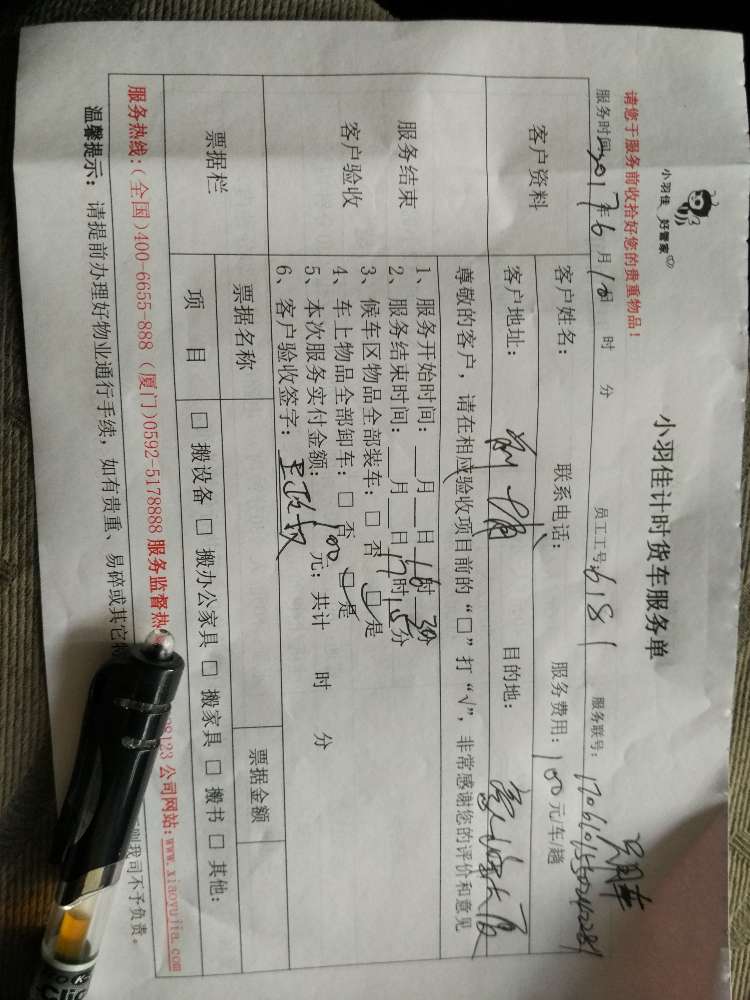 小羽佳 好管家
小羽佳计时货车服务单
请您于服务前收拾好您的贵重物品！
服务时间2017年6月10日 时 分 员工工号6181 服务联号：
客户资料 客户姓名： 联系电话： 服务费用：100元/车趟
客户地址：前埔 目的地：
服务结束 客户验收
尊敬的客户，请在相应验收项目前的“□”打“√”，非常感谢您的评价和意见
1、服务开始时间：__月__日16时30分
2、服务结束时间：__月__日17时15分
3、候车区物品全部装车：□ 否 ☑ 是
4、车上物品全部卸车：□ 否 ☑ 是
5、本次服务实付金额：100元；共计 时 分
6、客户验收签字：
票据栏 票据名称 票据金额
项 目 □ 搬设备 □ 搬办公家具 □ 搬家具 □ 搬书 □ 其他：
服务热线：(全国)400-6655-888 (厦门)0592-5178888 服务监督热 8123 公司网站：www.xiaoyujia.com
温馨提示：请提前办理好物业通行手续，如有贵重、易碎或其它 我司不予负责。